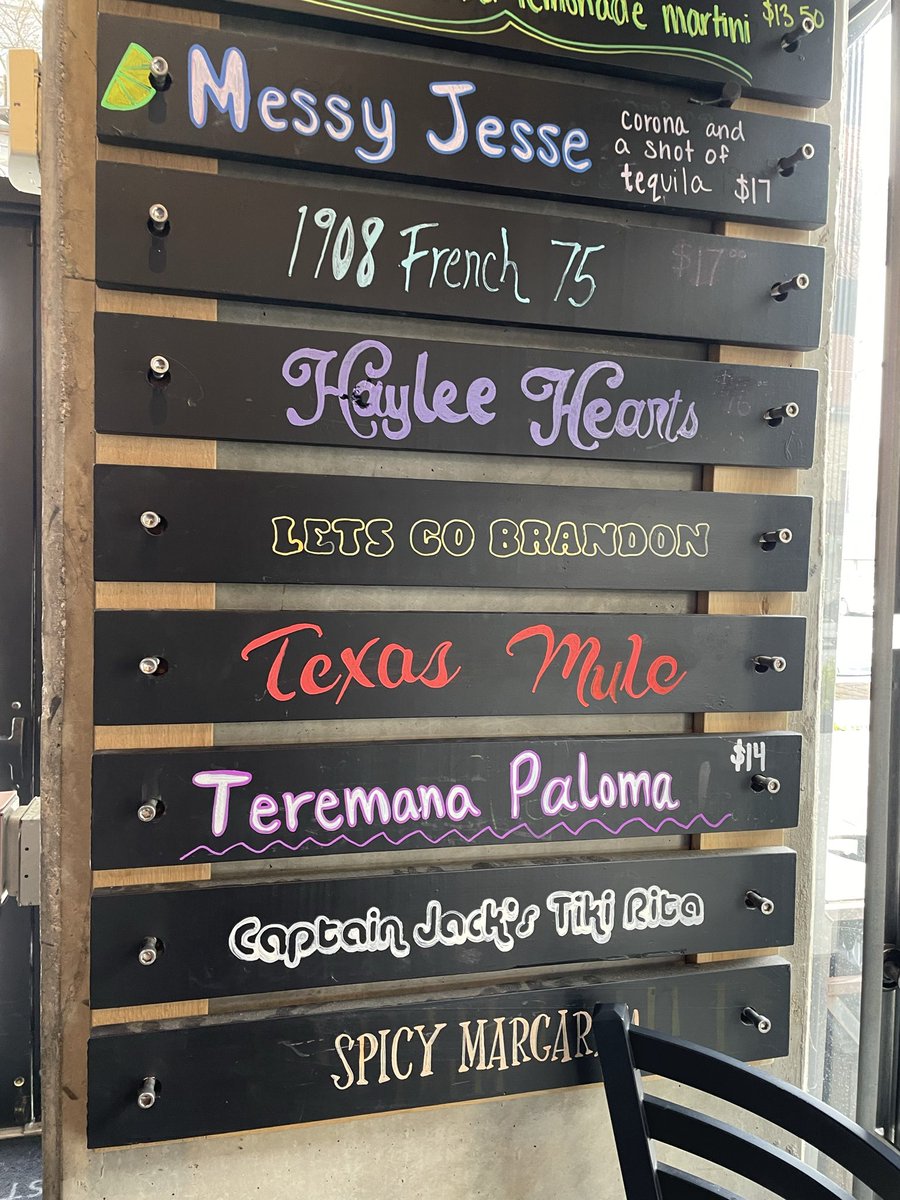 lemonade martini $13.50
Messy Jesse
corona and
a shot of
tequila $17
1908 French 75 $17.00
Haylee Hearts
LETS GO BRANDON
Texas Mule
Teremana Paloma $14
Captain Jack's Tiki Rita
SPICY